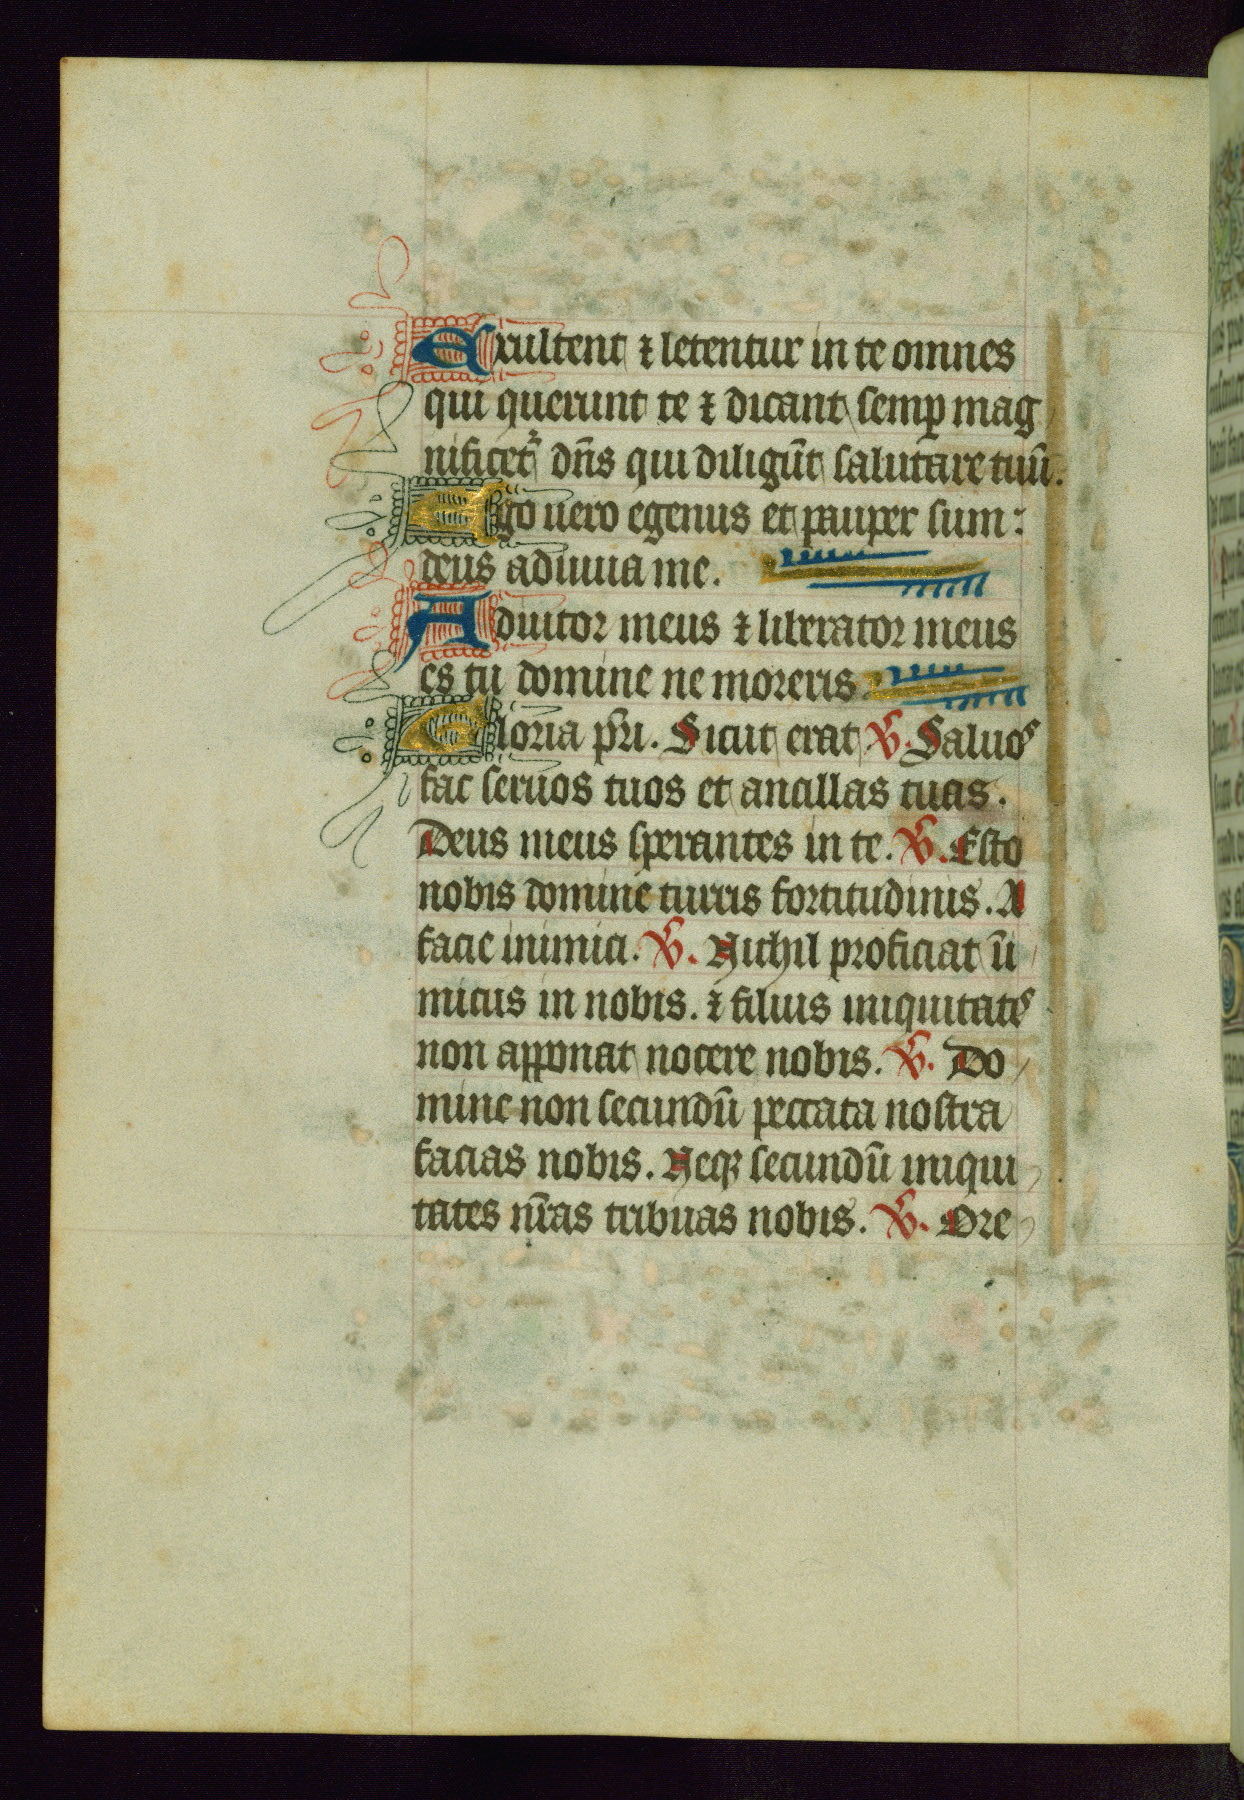 Exultent ⁊ letentur in te omnes
qui querunt te ⁊ dicant semꝑ mag
nificet᷑ dn̄s qui diligūt salutare tuū.
Ego uero egenus et pauper sum:
deus adiuua me.
Adiutor meus ⁊ liberator meus
es tu domine ne moreris.
Gloria pr̄i. Sicut erat ℣. Saluos
fac seruos tuos et ancillas tuas.
Deus meus sperantes in te. ℣. Esto
nobis domine turris fortitudinis. A
facie inimici. ℣. Nichil proficiat ini
micus in nobis. ⁊ filius iniquitatis
non apponat nocere nobis. ℣. Do
mine non secundū peccata nostra
facias nobis. Neqꝫ secundū iniqui
tates nr̄as tribuas nobis. ℣. Ore